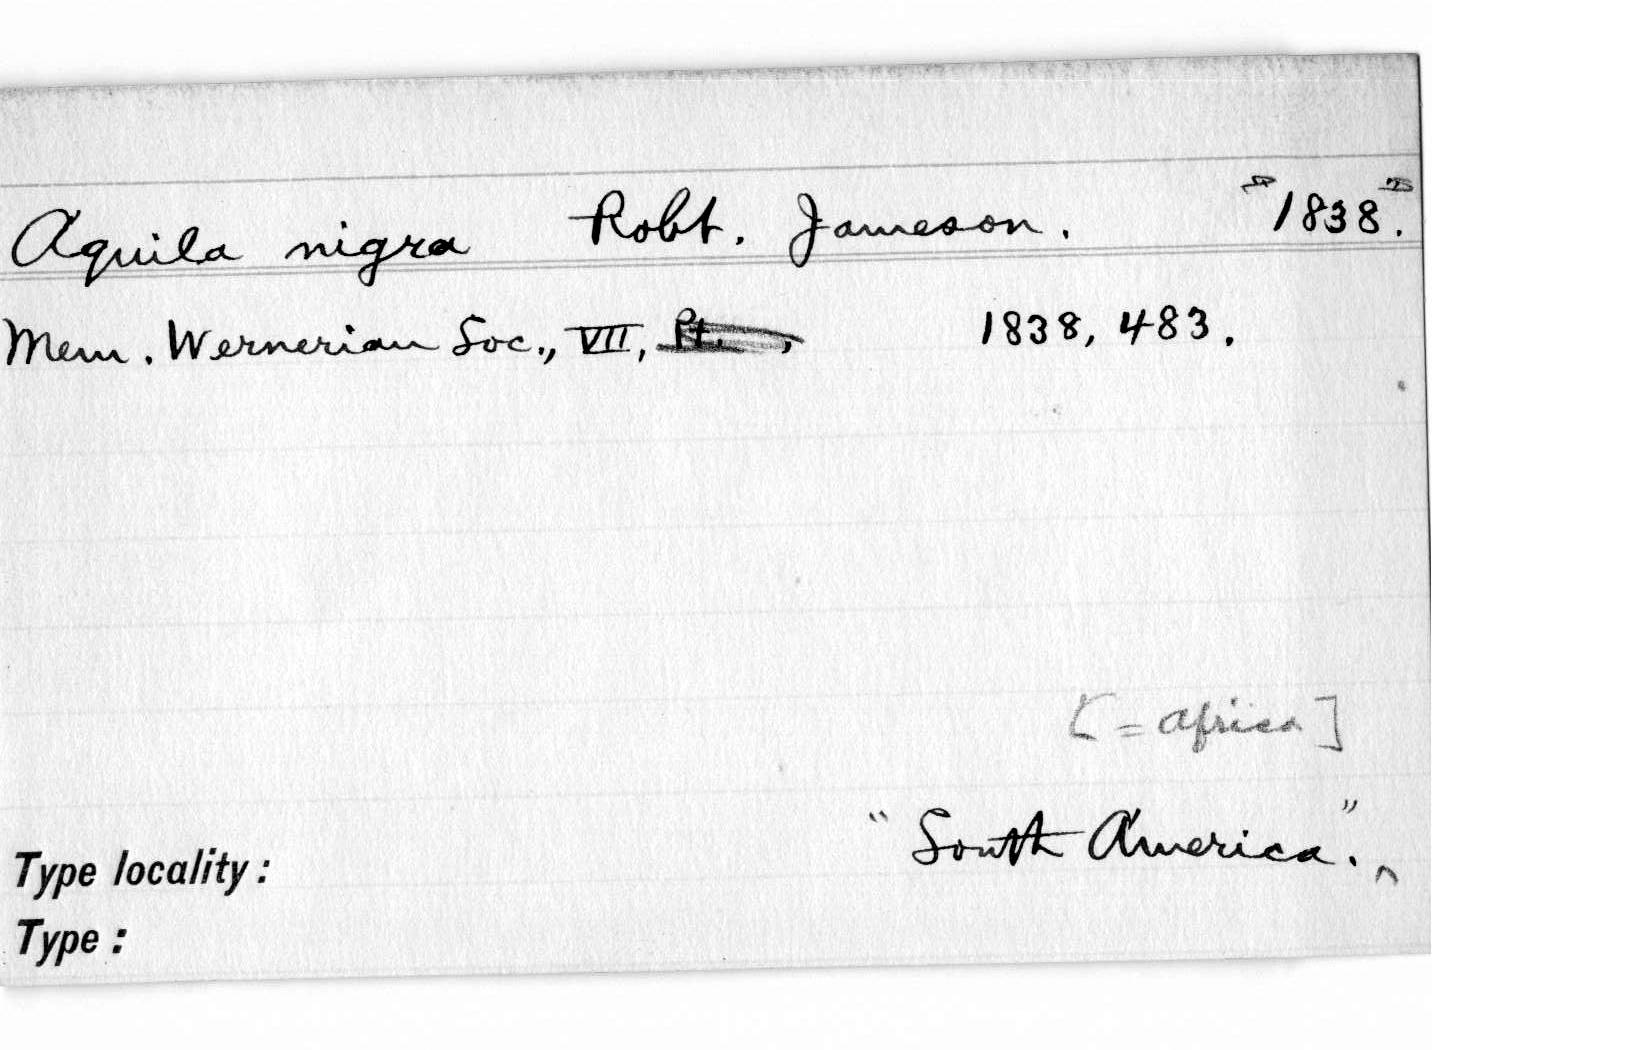 Aquila nigra Robt. Jameson. "1838".
Mem. Wernerian Soc., VII, Pt. , 1838, 483.
[= Africa]
Type locality: "South America."
Type: